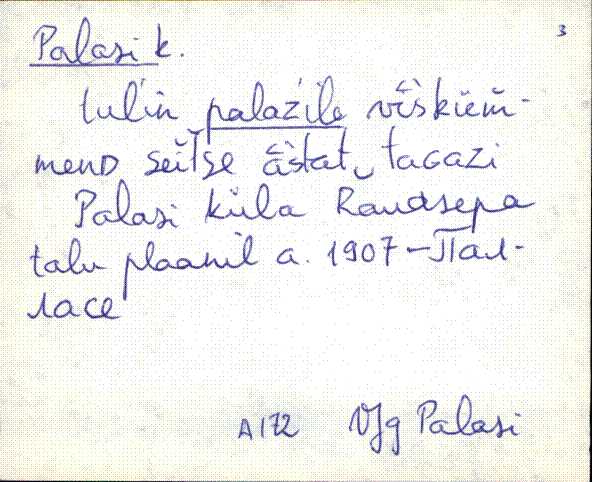 3
Palasi k.
tul'in palaz'ile vīsküm̄-
menD seitse āstat tagazi
Palasi küla Randsepa
talu plaanil a. 1907 – Пал-
ласе
A172 VJg Palasi